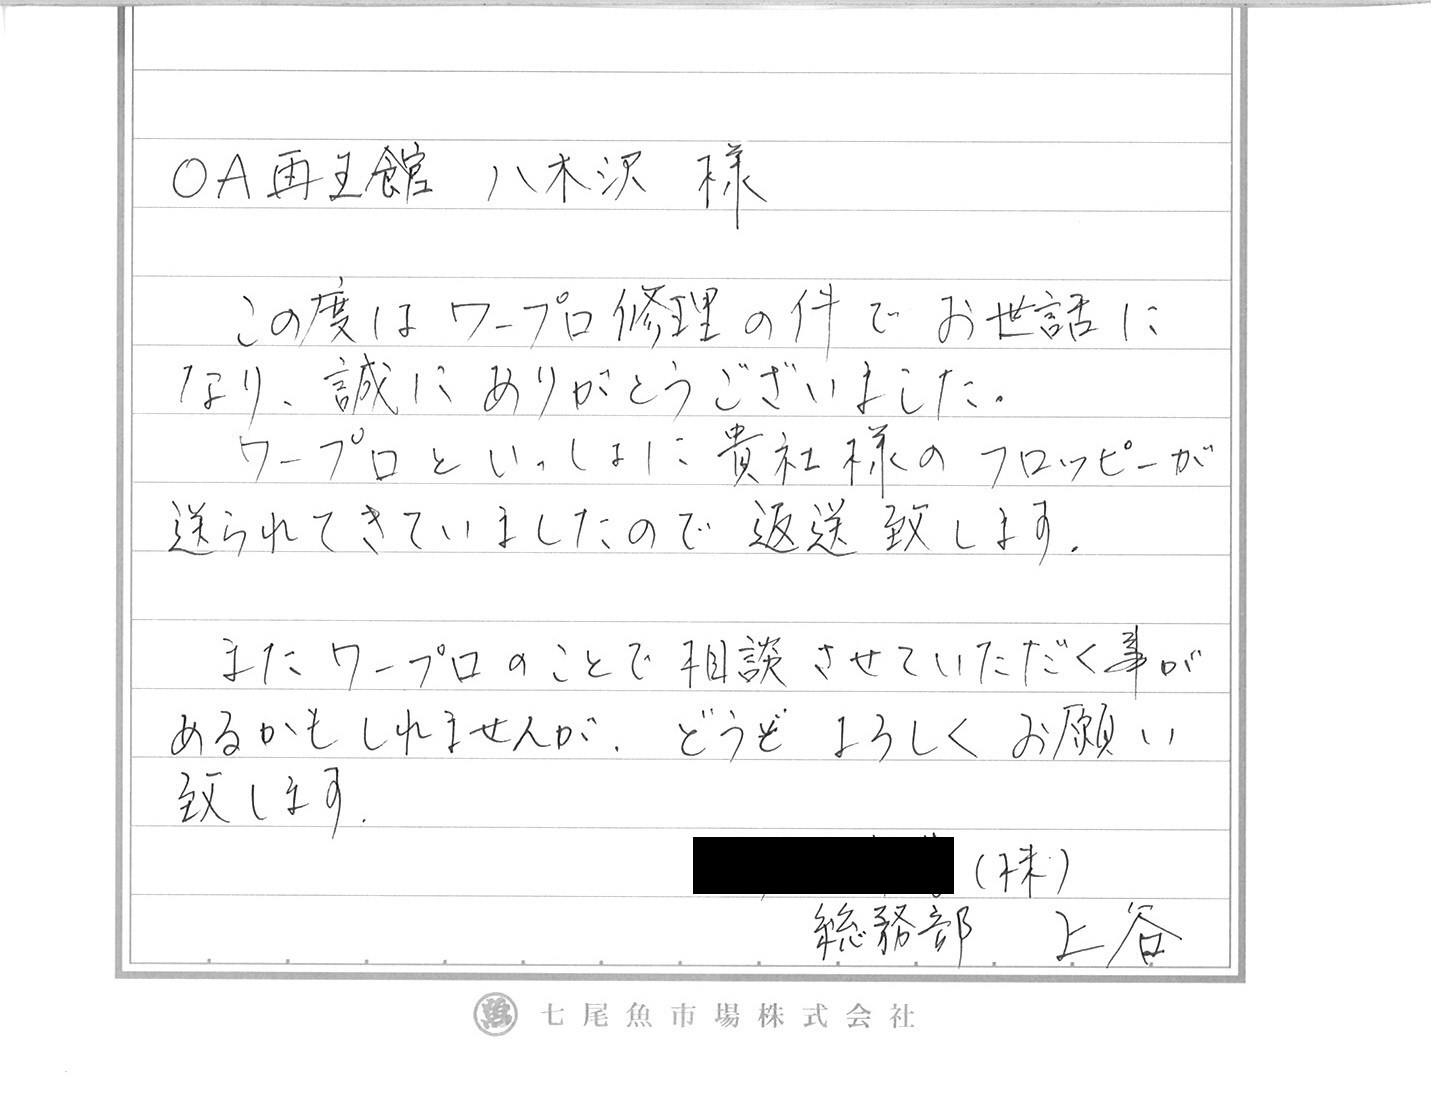 OA再生館 八木沢 様
この度は ワープロ修理の件で お世話に
なり、誠に ありがとうございました。
ワープロと いっしょに 貴社様の フロッピーが
送られてきていましたので 返送致します.
また ワープロのことで 相談させていただく事が
あるかもしれませんが. どうぞ よろしく お願い
致します.
(株)
総務部 上谷
七尾魚市場株式会社